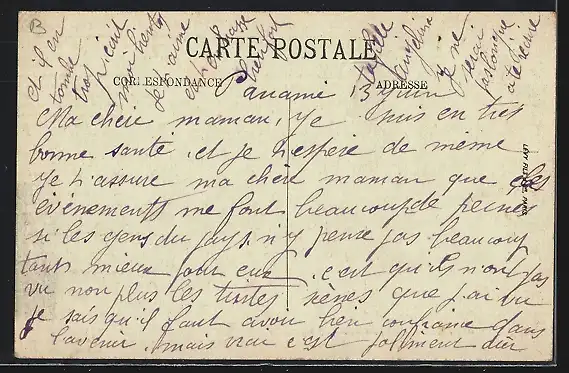 CARTE POSTALE
CORRESPONDANCE
ADRESSE
Paramé 13 juin
Ma chère maman, je suis en très
bonne santé, et je t'espère de même
je t'assure ma chère maman que les
évenements me font beaucoup de peines
si les gens du pays n'y pense pas beaucoup
tant mieux pour eux, c'est qu'ils n'ont pas
vu non plus les tristes scènes que j'ai vu
je sais qu'il faut avoir bien confiance dans
l'avenir, mais vrai c'est joliment dûr
et il en
tombe
trop
écrit
moi bientôt
je
aime
et
embrasse
bien fort
ta fille
Angelina
je ne
serai
à la Reine
B